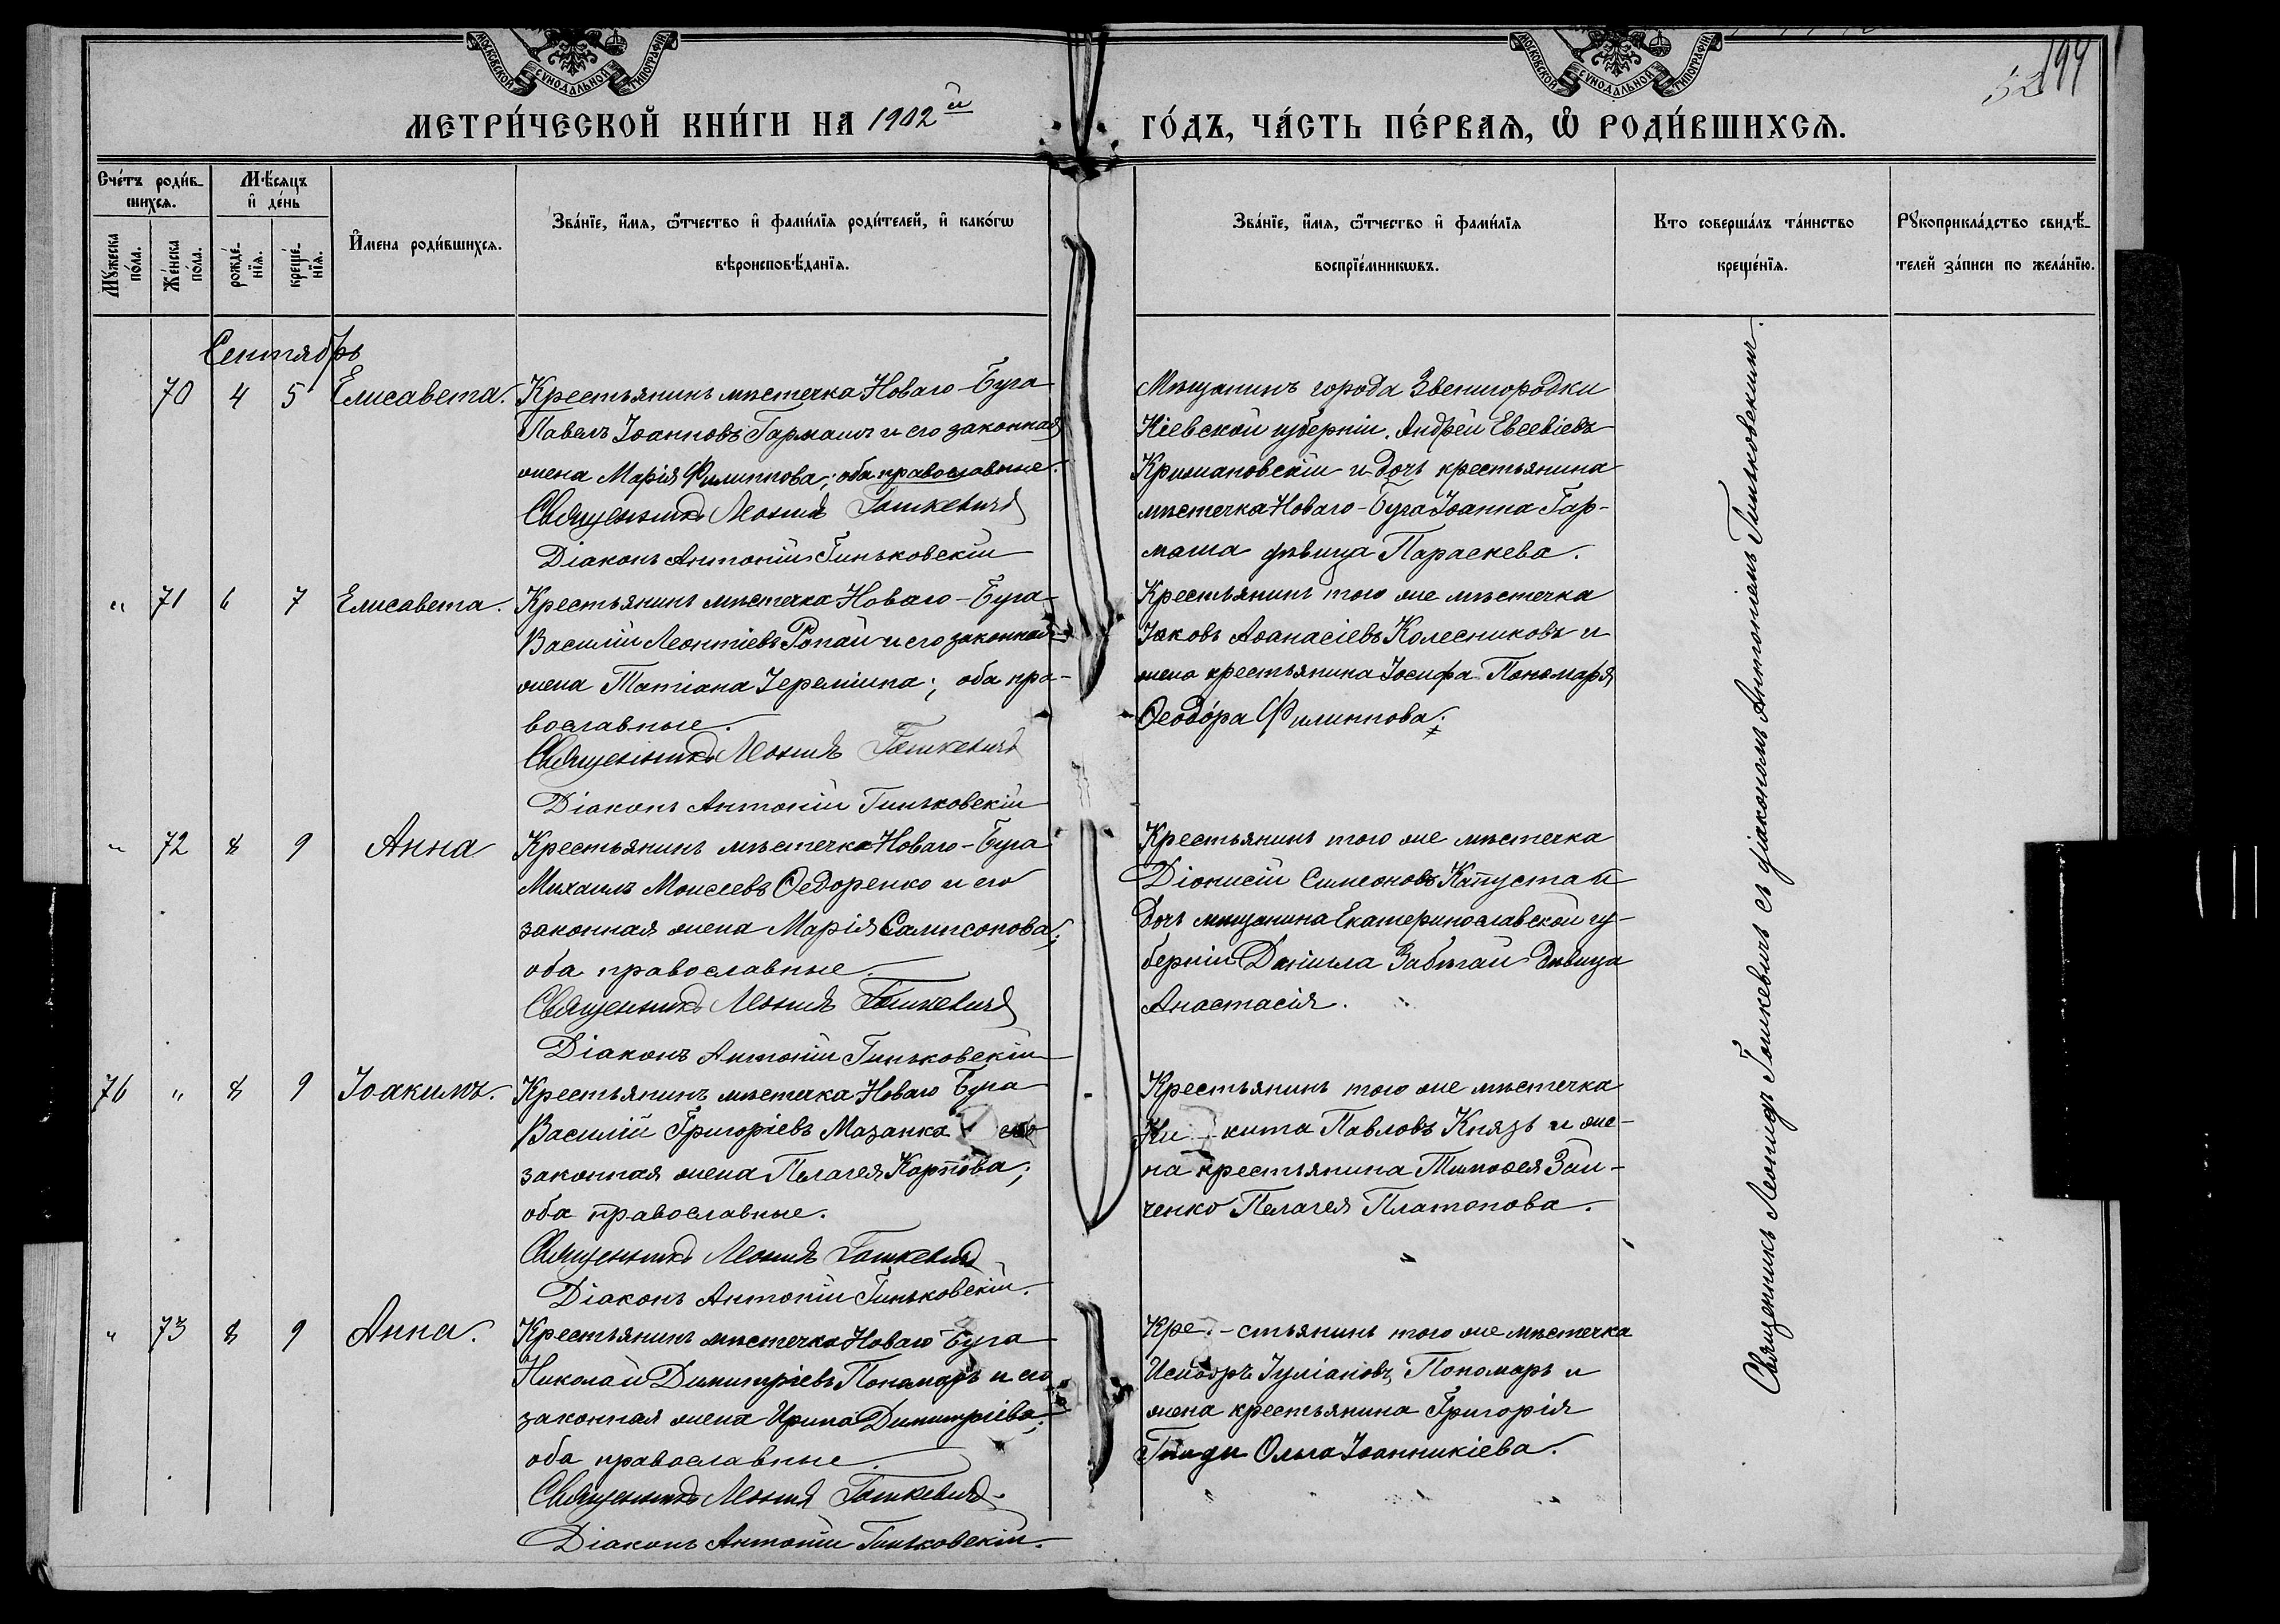 МОСКОВСКОЙ СѴНОДАЛЬНОЙ ТИПОГРАФІИ
МОСКОВСКОЙ СѴНОДАЛЬНОЙ ТИПОГРАФІИ
194
52
МЕТРИ́ЧЕСКОЙ КНИ́ГИ НА 1902й
ГО́ДЪ, ЧА́СТЬ ПЕ́РВАѦ, Ѡ҆ РОДИ́ВШИХСѦ.
Сче́тъ роди́в-
шихсѧ.
Мꙋ́жеска по́ла.
Же́нска по́ла.
Мѣ́сѧцъ
и҆ де́нь
рожде́-
нїѧ.
креще́-
нїѧ.
И҆́мена роди́вшихсѧ.
Зва́нїе, и҆́мѧ, ѻ҆́тчество и҆ фами́лїѧ роди́телей, и҆ како́гѡ
вѣроисповѣ́данїѧ.
Зва́нїе, и҆́мѧ, ѻ҆́тчество и҆ фами́лїѧ
воспрїе́мникѡвъ.
Кто соверша́лъ та́инство
креще́нїѧ.
Рꙋкоприкла́дство свидѣ́-
телей за́писи по жела́нїю.
Сентябрь
70 4 5 Елисавета.
Крестьянинъ мѣстечка Новаго-Буга
Павелъ Іоанновъ Гармашъ и его законная
жена Марія Филиппова; оба православные.
Священникъ Леонидъ Гошкевичъ
Діаконъ Антоній Гиньковскій
Мѣщанинъ города Звенигородки
Кіевской губерніи, Андрей Евсевіевъ
Крижановскій и дочь крестьянина
мѣстечка Новаго-Буга Іоанна Гар-
маша дѣвица Параскева.
" 71 6 7 Елисавета.
Крестьянинъ мѣстечка Новаго-Буга
Василій Леонтіевъ Ропай и его законная
жена Татіана Іереміина; оба пра-
вославные.
Священникъ Леонидъ Гошкевичъ
Діаконъ Антоній Гиньковскій
Крестьянинъ того же мѣстечка
Іаковъ Аѳанасіевъ Колесниковъ и
жена крестьянина Іосифа Пономаря
Ѳеодора Филиппова.
" 72 8 9 Анна
Крестьянинъ мѣстечка Новаго-Буга
Михаилъ Моисеевъ Ѳедоренко и его
законная жена Марія Сампсонова;
оба православные.
Священникъ Леонидъ Гошкевичъ
Діаконъ Антоній Гиньковскій
Крестьянинъ того же мѣстечка
Діонисій Симеоновъ Капуста и
дочь мѣщанина Екатеринославской гу-
берніи Даніила Забѣгай дѣвица
Анастасія.
76 " 8 9 Іоакимъ.
Крестьянинъ мѣстечка Новаго Буга
Василій Григоріевъ Мазанка и его
законная жена Пелагея Карпова;
оба православные.
Священникъ Леонидъ Гошкевичъ
Діаконъ Антоній Гиньковскій.
Крестьянинъ того же мѣстечка
Ни-кита Павловъ Князь и же-
на крестьянина Тимоѳея Заи-
ченко Пелагея Платонова.
" 73 8 9 Анна.
Крестьянинъ мѣстечка Новаго Буга
Николай Димитріевъ Пономарь и его
законная жена Ирина Димитріева;
оба православные.
Священникъ Леонидъ Гошкевичъ
Діаконъ Антоній Гиньковскій.
Кре-стьянинъ того же мѣстечка
Исидоръ Іуліановъ Пономарь и
жена крестьянина Григорія
Ольга Іоанникіева.
Священникъ Леонидъ Гошкевичъ съ діакономъ Антоніемъ Гиньковскимъ.